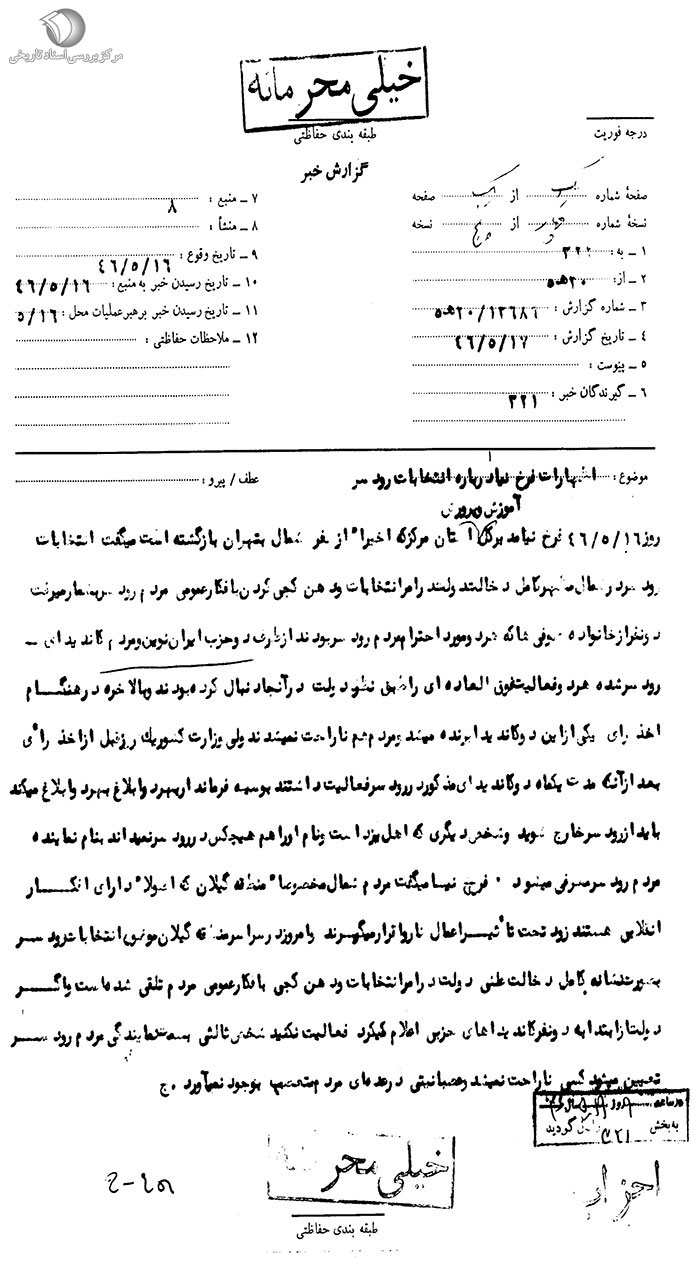 مرکز بررسی اسناد تاریخی
خیلی محرمانه
طبقه بندی حفاظتی
درجه فوریت
گزارش خبر
صفحهٔ شماره یک از یک صفحه
نسخهٔ شماره از پنج نسخه
۱ ـ به : ۳۲۲
۲ ـ از: ۲۰ ه‍ ۵
۳ ـ شماره گزارش : ۲۰/۱۲۶۸۶ ه‍ ۵
۴ ـ تاریخ گزارش : ۴۶/۵/۱۷
۵ ـ پیوست :
۶ ـ گیرندگان خبر : ۳۲۱
۷ ـ منبع :
۸ ـ منشأ : ۸
۹ ـ تاریخ وقوع : ۴۶/۵/۱۶
۱۰ ـ تاریخ رسیدن خبر به منبع : ۴۶/۵/۱۶
۱۱ ـ تاریخ رسیدن خبر برهبر عملیات محل : ۵/۱۶
۱۲ ـ ملاحظات حفاظتی :
موضوع : اظهارات فرخ نیا درباره انتخابات رود سر
عطف / پیرو :
آموزش وپرورش
روز ۴۶/۵/۱۶ فرخ نیا مدیرکل استان مرکز که اخیرا" از سفر شمال بتهران بازگشته است میگفت انتخابات
رود سر در شمال مظهر کامل دخالت دولت در امر انتخابات و دهن کجی کردن بافکار عمومی مردم رود سر بشمار میرفت
دو نفر از خانواده صوفی ها که هر دو مورد احترام مردم رود سر بودند از طرف دو حزب ایران نوین و مردم کاندیدای ـ
رود سر شده هر دو فعالیت فوق العاده ای را طبق نظر دولت در آنجا دنبال کرده بودند و بالاخره در هنگام
اخذ رای یکی از این دو کاندیدا برنده میشد و مردم هم ناراحت نمیشدند ولی وزارت کشور یک روز قبل از اخذ رأی
بعد از آنکه مدت یکماه دو کاندیدای مذکور در رود سر فعالیت داشتند بوسیله فرماندار بهر دو ابلاغ میکند
باید از رود سر خارج شوید و شخص دیگری که اهل یزد است و نام او را هم هیچکس در رود سر نمیداند بنام نماینده
مردم رود سر معرفی میشود . فرخ نیا میگفت مردم شمال مخصوصا" منطقه گیلان که اصولا" دارای افکار
انقلابی هستند زود تحت تأثیر اعمال ناروا قرار میگیرند و امروز در سراسر منطقه گیلان موضوع انتخابات رود سر
بصورت نشانه کامل دخالت علنی دولت در امر انتخابات و دهن کجی بافکار عمومی مردم تلقی شده است و اگر
دولت از ابتدا به دو نفر کاندیداهای حزبی اعلام میکرد فعالیت نکنید شخص ثالثی بسمت نمایندگی مردم رود سر
تعیین میشود کسی ناراحت نمیشد و عصبانیتی در عده ای مردم متعصب بوجود نمیآورد . ج
در ساعت روز
به بخش ۳۲۱ گردید
احزاب
خیلی محرمانه
طبقه بندی حفاظتی